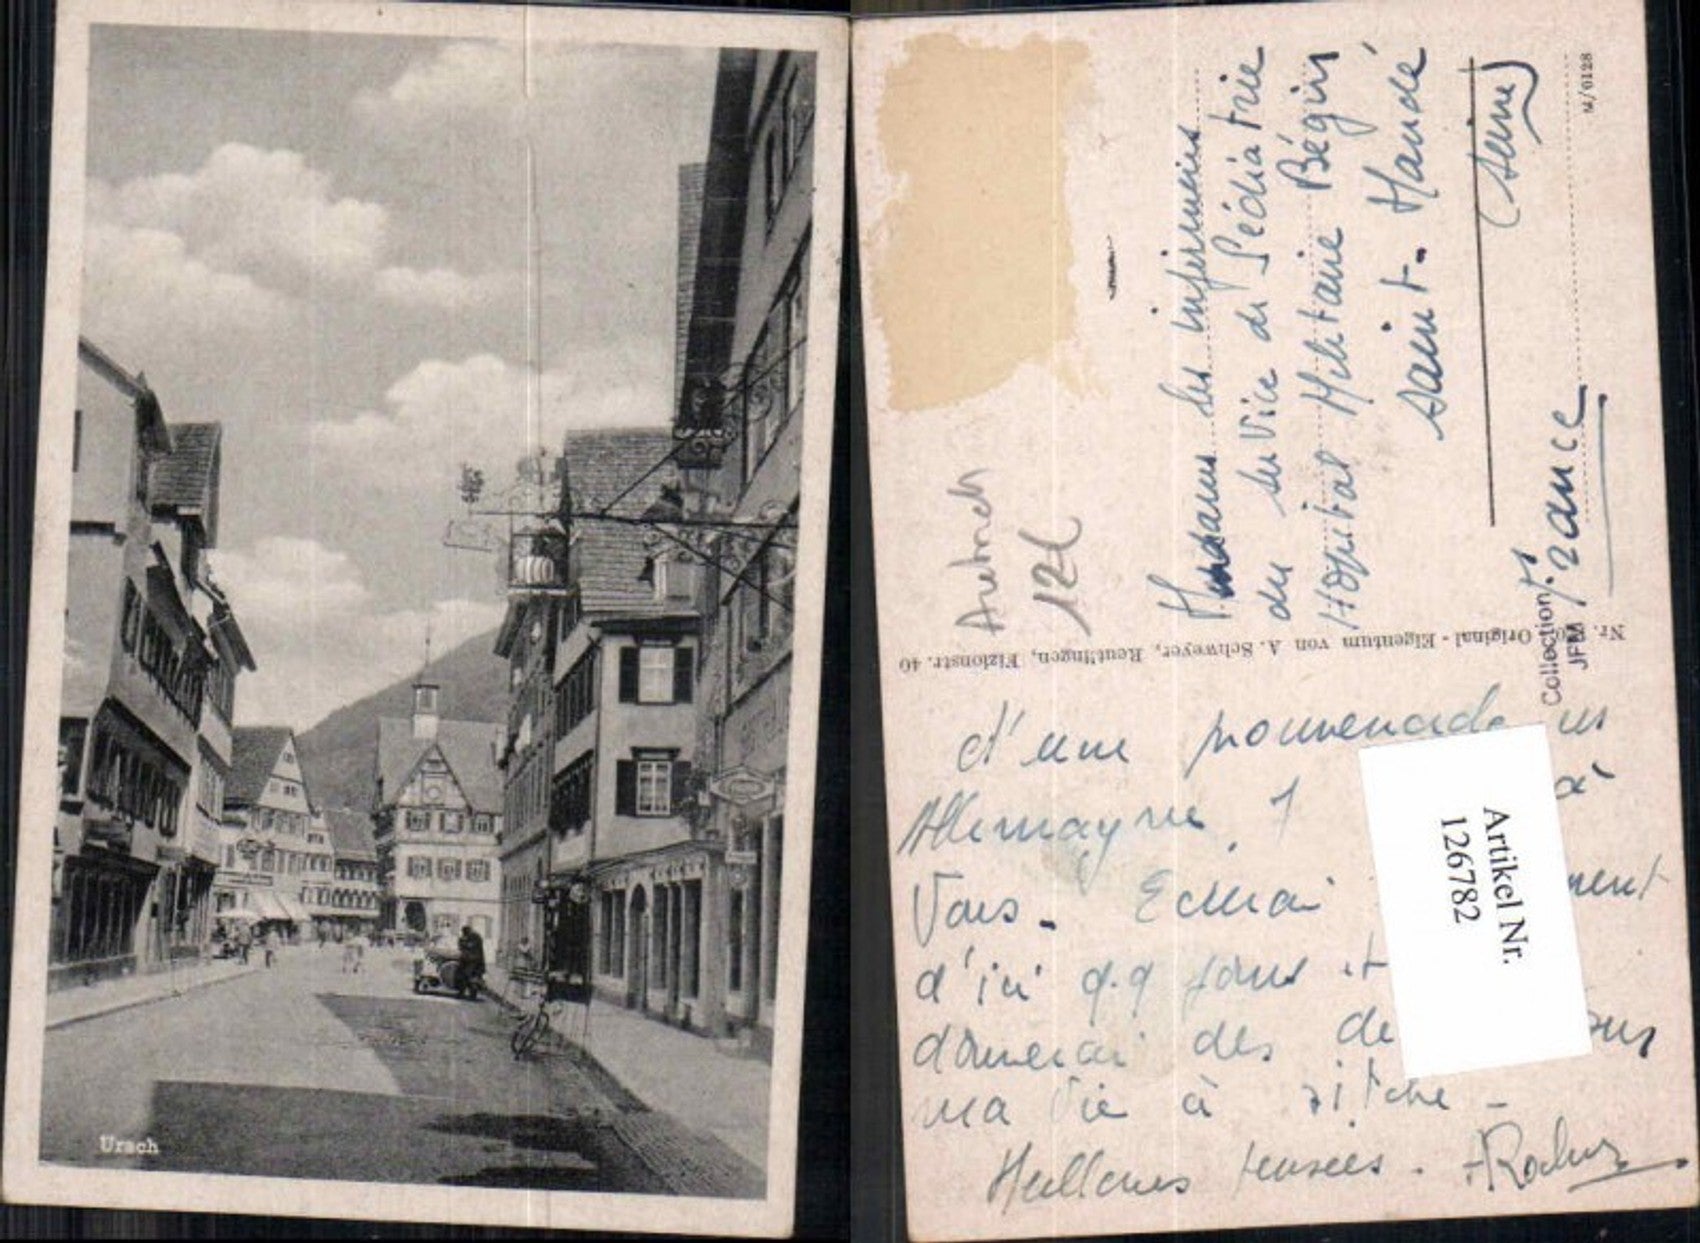 Urach
Mesdames les infirmières
du service de Pédiatrie
Hôpital Militaire Bégin
Saint-Mandé
(Seine)
France
M/0128
Aurach
12€
Nr. Original-Eigentum von A. Schweyer, Reutlingen, Fizionstr. 40
Collection
JFM
d'une promenade en
Allemagne, à
Vous. Ecrirai ment
d'ici q.q jours et
donnerai des de sur
ma vie à Bitche -
Meilleures pensées.
Artikel Nr.
126782